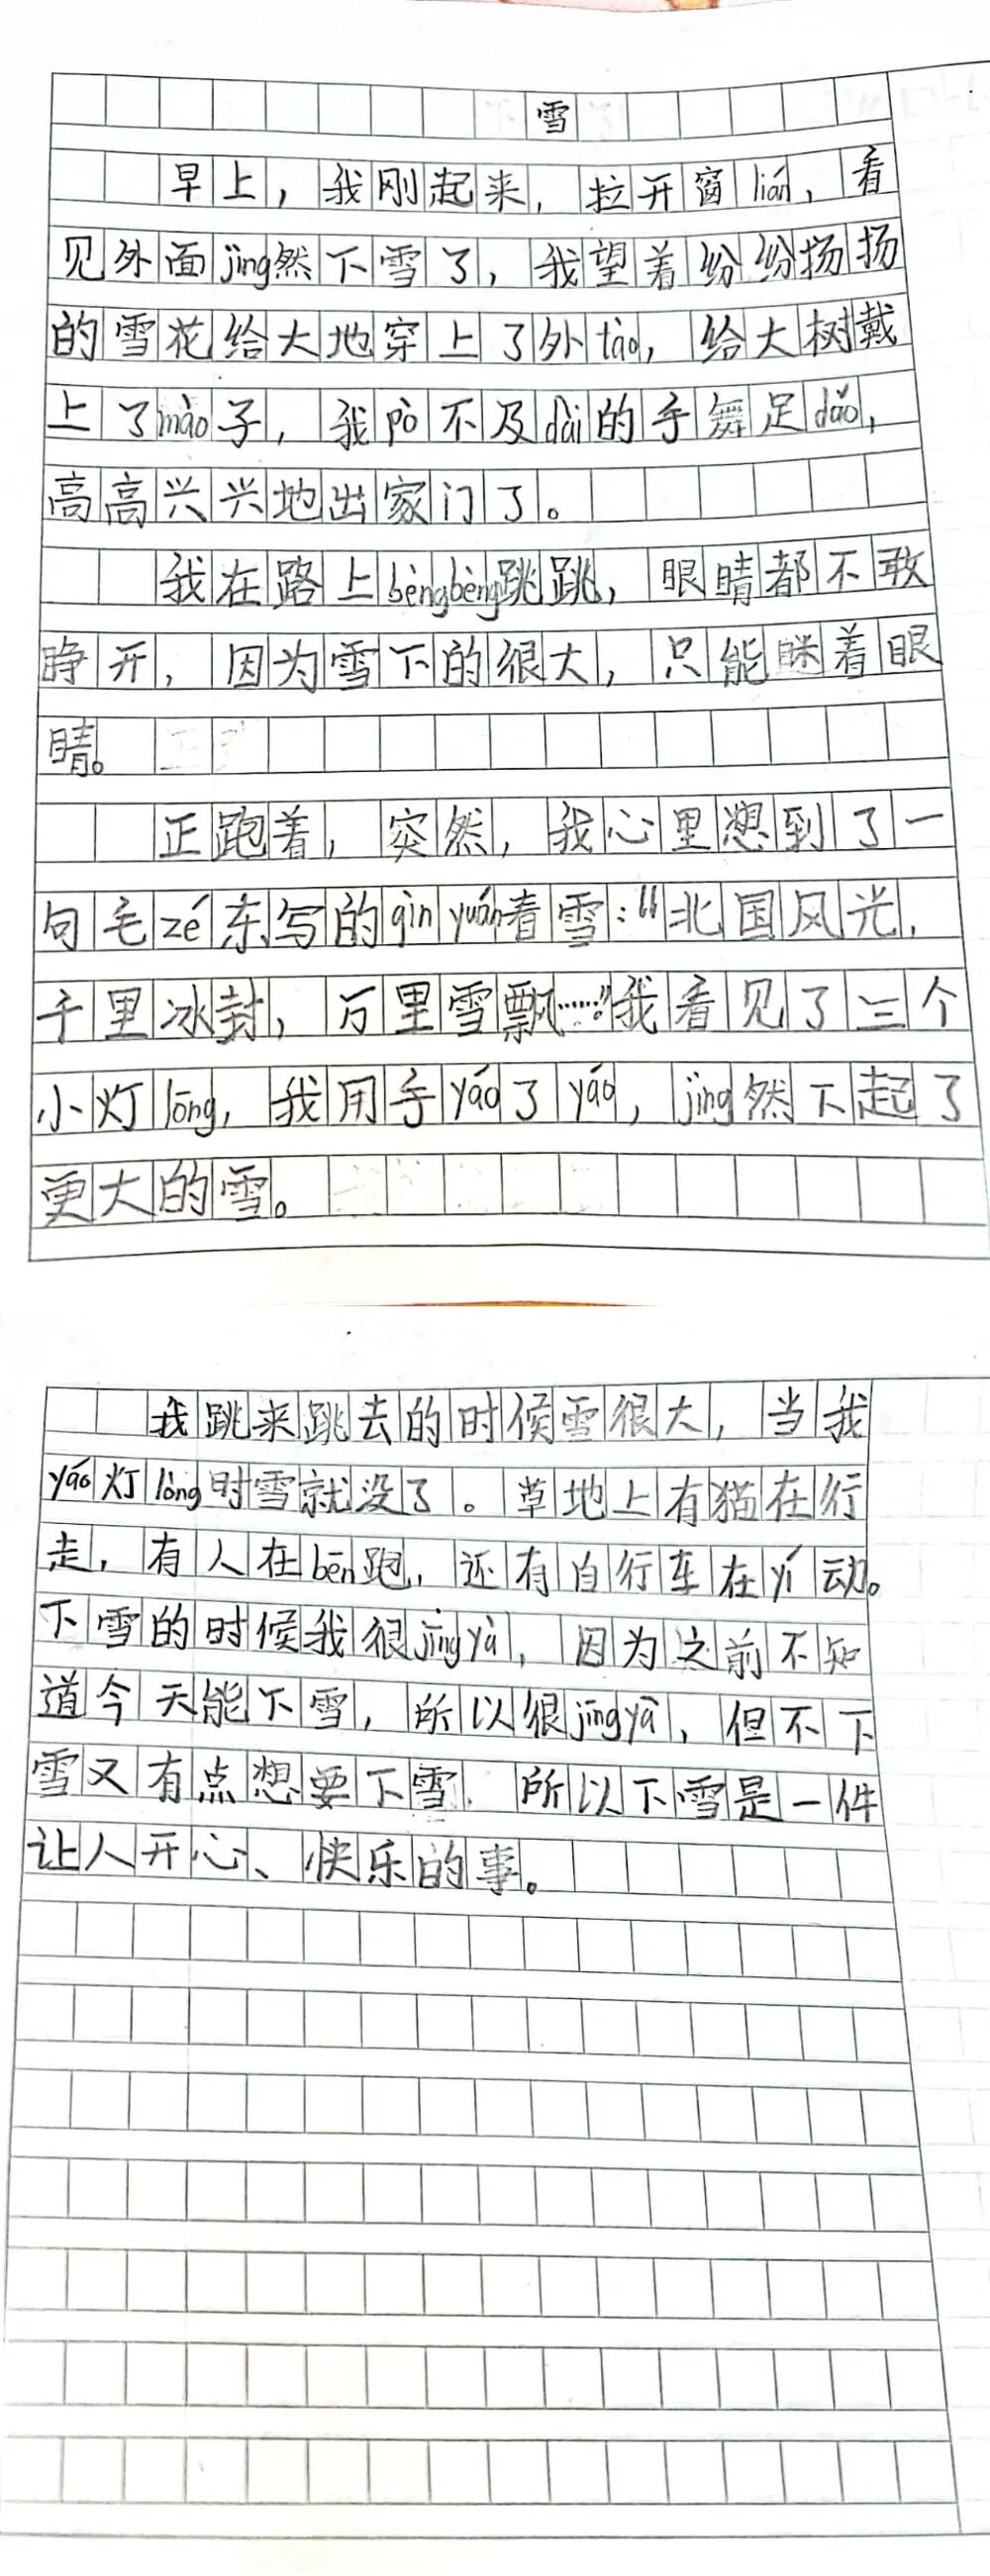 雪
早上，我刚起来，拉开窗lián，看
见外面jìng然下雪了，我望着纷纷扬扬
的雪花给大地穿上了外tào，给大树戴
上了mào子，我pò不及dài的手舞足dǎo，
高高兴兴地出家门了。
我在路上bèngbèng跳跳，眼睛都不敢
睁开，因为雪下的很大，只能眯着眼
睛。
正跑着，突然，我心里想到了一
句毛zé东写的qìn yuán春雪：“北国风光，
千里冰封，万里雪飘……”我看见了三个
小灯lōng，我用手yáo了yáo，jìng然下起了
更大的雪。
我跳来跳去的时候雪很大，当我
yáo灯lòng时雪就没了。草地上有猫在行
走，有人在bēn跑，还有自行车在yí动。
下雪的时候我很jīngyà，因为之前不知
道今天能下雪，所以很jīngyà，但不下
雪又有点想要下雪，所以下雪是一件
让人开心、快乐的事。